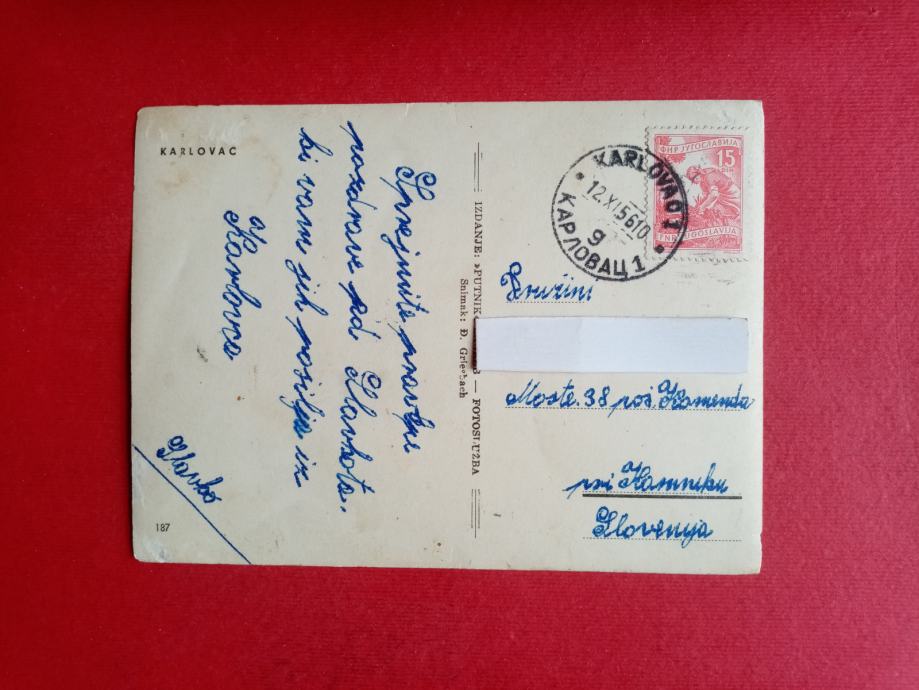 KARLOVAC
Sprejmite pravlepe
pozdrave od Slavkota.
ki vam jih pošilja iz
Karlovca
Slavko
187
IZDANJE: »PUTNIK — FOTOSLUŽBA
Snimak: Đ. Griesbach
ФНР ЈУГОСЛАВИЈА
15
DIN
FNR JUGOSLAVIJA
KARLOVAC 1
12.XI.56 10
9
КАРЛОВАЦ 1
Družini
Moste. 38 poš. Komenda
pri Kamniku
Slovenija